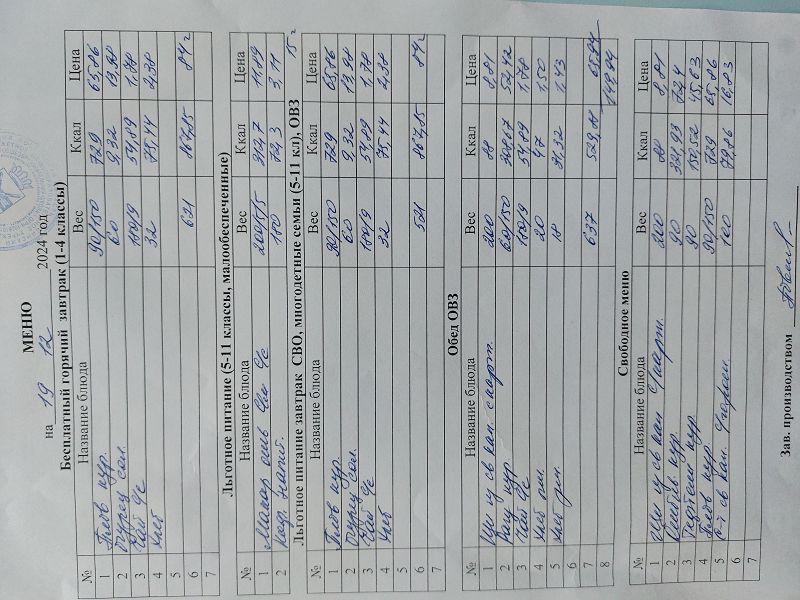 МЕНЮ
на 19 12 2024 год
Бесплатный горячий завтрак (1-4 классы)
№ Название блюда Вес Ккал Цена
1 Плов кур. 90/150 729 65,86
2 Огурец сол. 60 9,32 13,98
3 Чай с/с 180/9 54,89 1,78
4 Хлеб 32 75,44 2,38
5
6 521 867,85 84 г
7
Льготное питание (5-11 классы, малообеспеченные)
№ Название блюда Вес Ккал Цена
1 200/5/5 11,89
2 180 72,3 3,11
15 г
Льготное питание завтрак СВО, многодетные семьи (5-11 кл), ОВЗ
№ Название блюда Вес Ккал Цена
1 Плов кур. 90/150 729 65,86
2 Огурец сол. 60 9,32 13,98
3 Чай с/с 180/9 54,89 1,78
4 Хлеб 32 75,44 2,38
5
6 521 867,85 84 г
7
Обед ОВЗ
№ Название блюда Вес Ккал Цена
1 Щи из св кап. 200 88 8,81
2 Рагу кур 60/150 308,67 52,42
3 Чай с/с 180/9 54,89 1,78
4 Хлеб 20 47 1,50
5 хлеб 18 31,32 1,43
6
7 637 529,88 65,94
8 149,94
Свободное меню
№ Название блюда Вес Ккал Цена
1 Щи из св кап 200 88 8,81
2 кур. 90 321,93
3 Тефтели кур 90 152,52 45,63
4 Плов кур 90/150 729 65,86
5 св кап. 100 79,86 16,83
6
7
Зав. производством